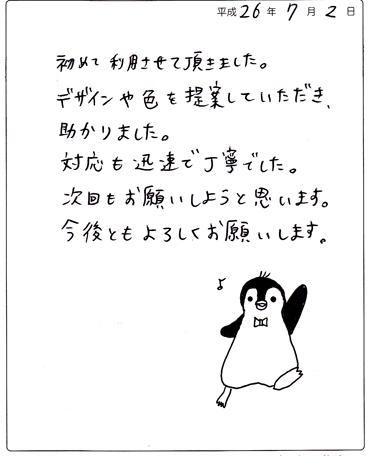 平成26年7月2日
初めて利用させて頂きました。
デザインや色を提案していただき、
助かりました。
対応も迅速で丁寧でした。
次回もお願いしようと思います。
今後ともよろしくお願いします。
♪